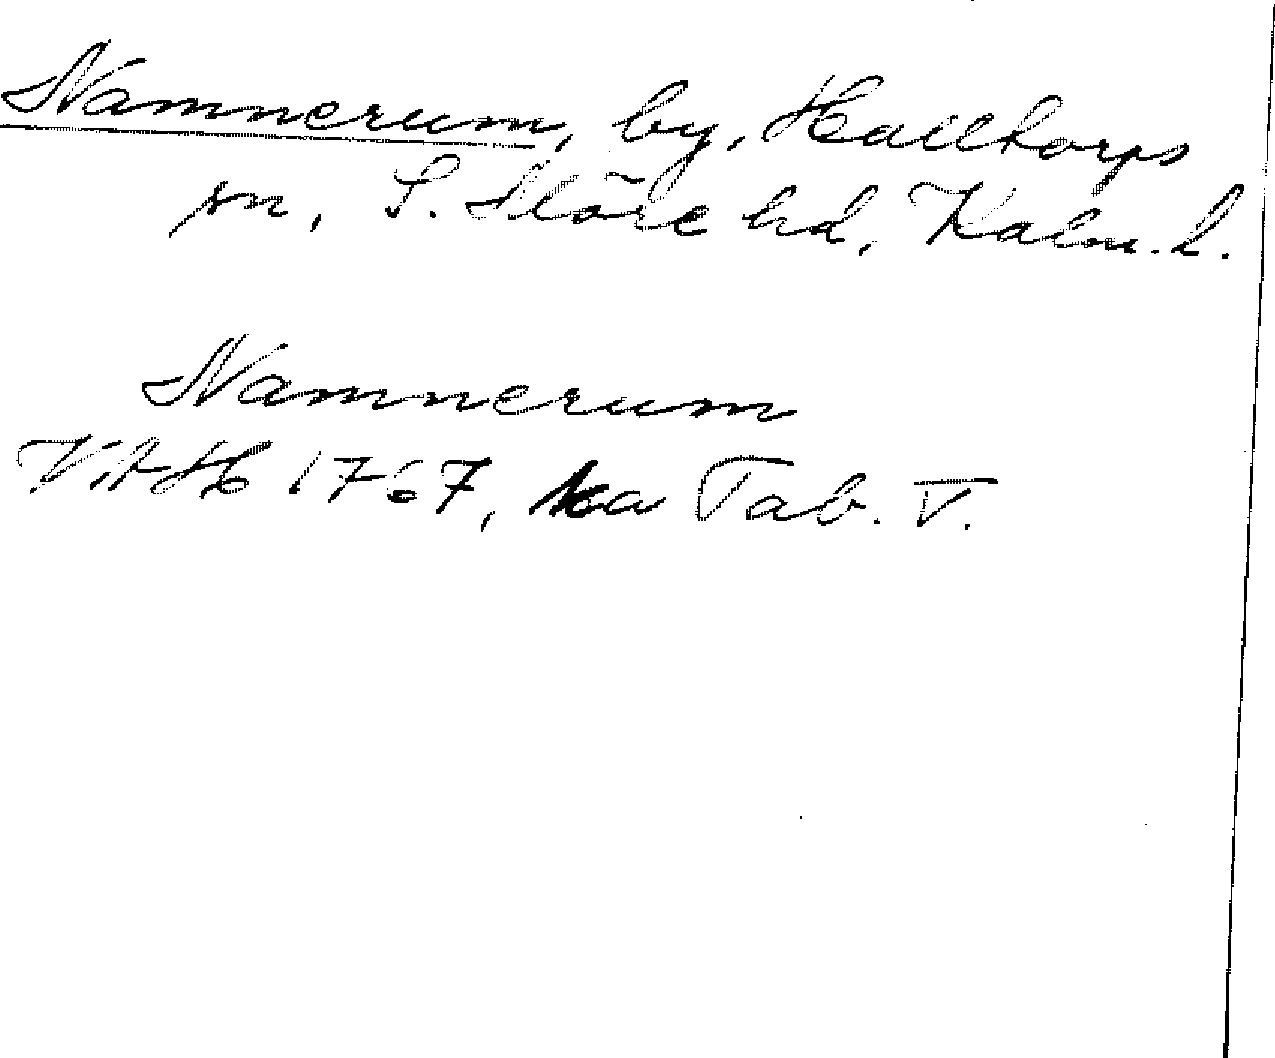 Namnerum, by, Halltorps
sn, S. Möre hd, Kalm. l.
Namnerum
VittH 1767, ka Tab. V.